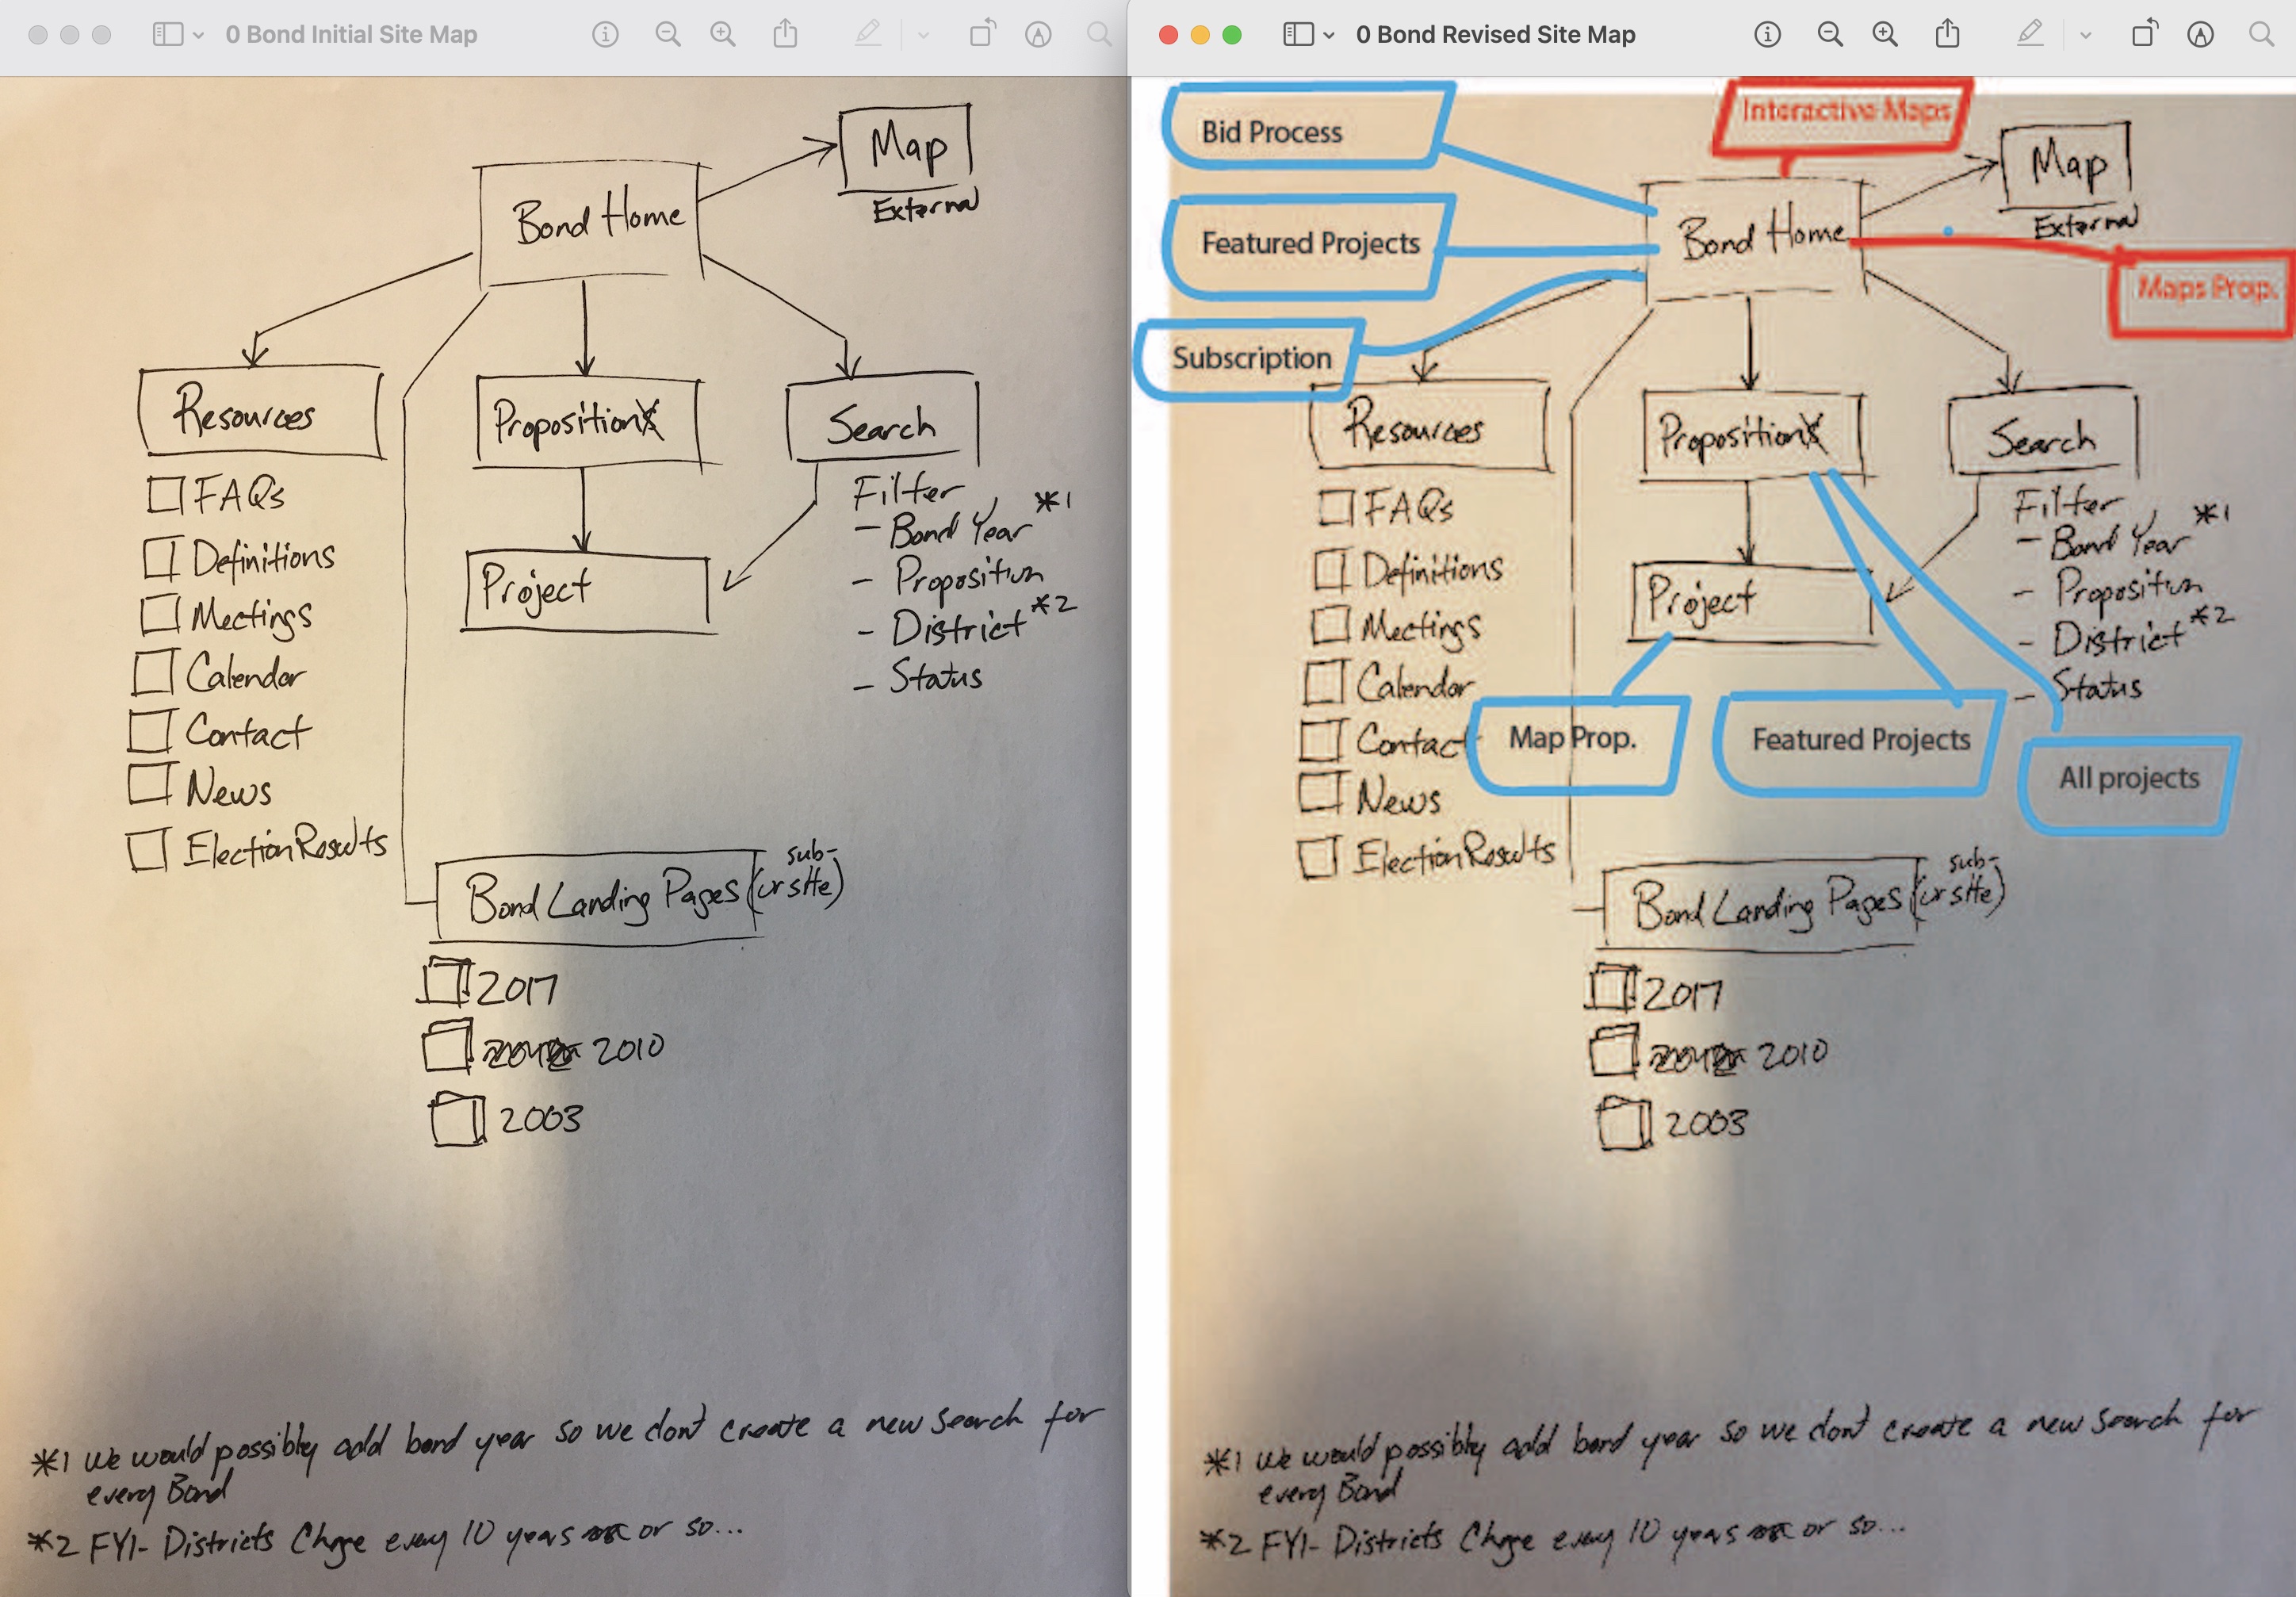 0 Bond Initial Site Map
Map
External
Bond Home
Resources
Propositions
Search
FAQs
Definitions
Meetings
Calendar
Contact
News
Election Results
Project
Filter
- Bond Year *1
- Proposition
- District *2
- Status
Bond Landing Pages (or sub-site)
2017
2010
2003
*1 We would possibly add bond year so we don't create a new search for
every Bond
*2 FYI- Districts Chnge every 10 years or so...
0 Bond Revised Site Map
Bid Process
Interactive Maps
Map
External
Featured Projects
Bond Home
Maps Prop.
Subscription
Resources
Propositions
Search
FAQs
Definitions
Meetings
Calendar
Contact
News
Election Results
Project
Filter
- Bond Year *1
- Proposition
- District *2
- Status
Map Prop.
Featured Projects
All projects
Bond Landing Pages (or sub-site)
2017
2010
2003
*1 We would possibly add bond year so we don't create a new search for
every Bond
*2 FYI- Districts Chnge every 10 years or so...